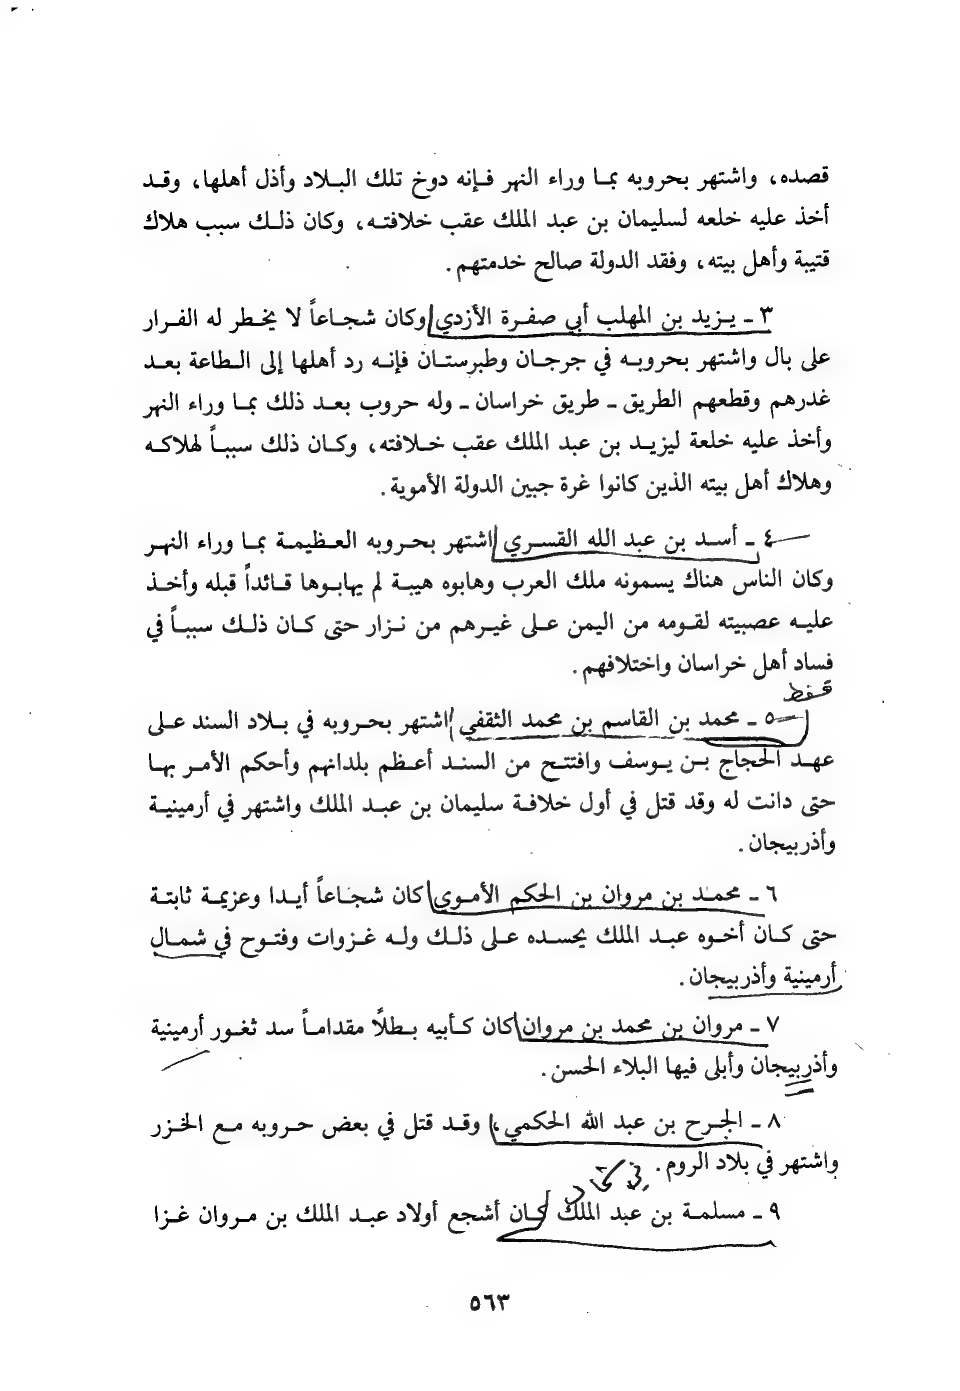 قصده، واشتهر بحروبه بمـا وراء النهر فـإنه دوخ تلك البـلاد وأذل أهلها، وقـد
أخذ عليه خلعه لسليمان بن عبد الملك عقب خلافتـه، وكان ذلـك سبب هلاك
قتيبة وأهل بيته، وفقد الدولة صالح خدمتهم.
٣ ـ يـزيد بن المهلب أبي صفـرة الأزدي وكان شجـاعاً لا يخـطر له الفـرار
على بال واشتهر بحروبـه في جرجـان وطبرستـان فإنـه رد أهلها إلى الـطاعة بعـد
غدرهم وقطعهم الطريق ـ طريق خراسان ـ وله حروب بعـد ذلك بمـا وراء النهر
وأخذ عليه خلعة ليزيـد بن عبد الملك عقب خـلافته، وكـان ذلك سببـاً لهلاكـه
وهلاك أهل بيته الذين كانوا غرة جبين الدولة الأموية.
٤ ـ أسـد بن عبد الله القسـري اشتهر بحـروبه العـظيمـة بمـا وراء النهـر
وكان الناس هناك يسمونه ملك العرب وهابوه هيبـة لم يهابـوها قـائداً قبله وأخـذ
عليـه عصبيته لقـومه من اليمن عـلى غيـرهم من نـزار حتى كـان ذلـك سببـاً في
فساد أهل خراسان واختلافهم.
فقط
٥ ـ محمد بن القاسم بن محمد الثقفي اشتهر بحـروبه في بـلاد السند عـلى
عهـد الحجاج بـن يـوسف وافتتـح من السنـد أعـظم بلدانهم وأحكم الأمـر بهـا
حتى دانت له وقد قتل في أول خلافـة سليمان بن عبـد الملك واشتهر في أرمينيـة
وأذربيجان.
٦ ـ محمـد بن مروان بن الحكم الأمـوي كان شجـاعاً أيـدا وعزيمـة ثابتـة
حتى كـان أخـوه عبـد الملك يحسـده عـلى ذلـك ولـه غـزوات وفتـوح في شمـال
أرمينية وأذربيجان.
٧ ـ مروان بن محمد بن مروان كان كـأبيه بـطلًا مقدامـاً سد ثغـور أرمينية
وأذربيجان وأبلى فيها البلاء الحسن.
٨ ـ الجـرح بن عبد الله الحكمي، وقـد قتل في بعض حـروبه مـع الخـزر
واشتهر في بلاد الروم.
٩ ـ مسلمـة بن عبد الملك كـان أشجع أولاد عبـد الملك بن مـروان غـزا
٥٦٣